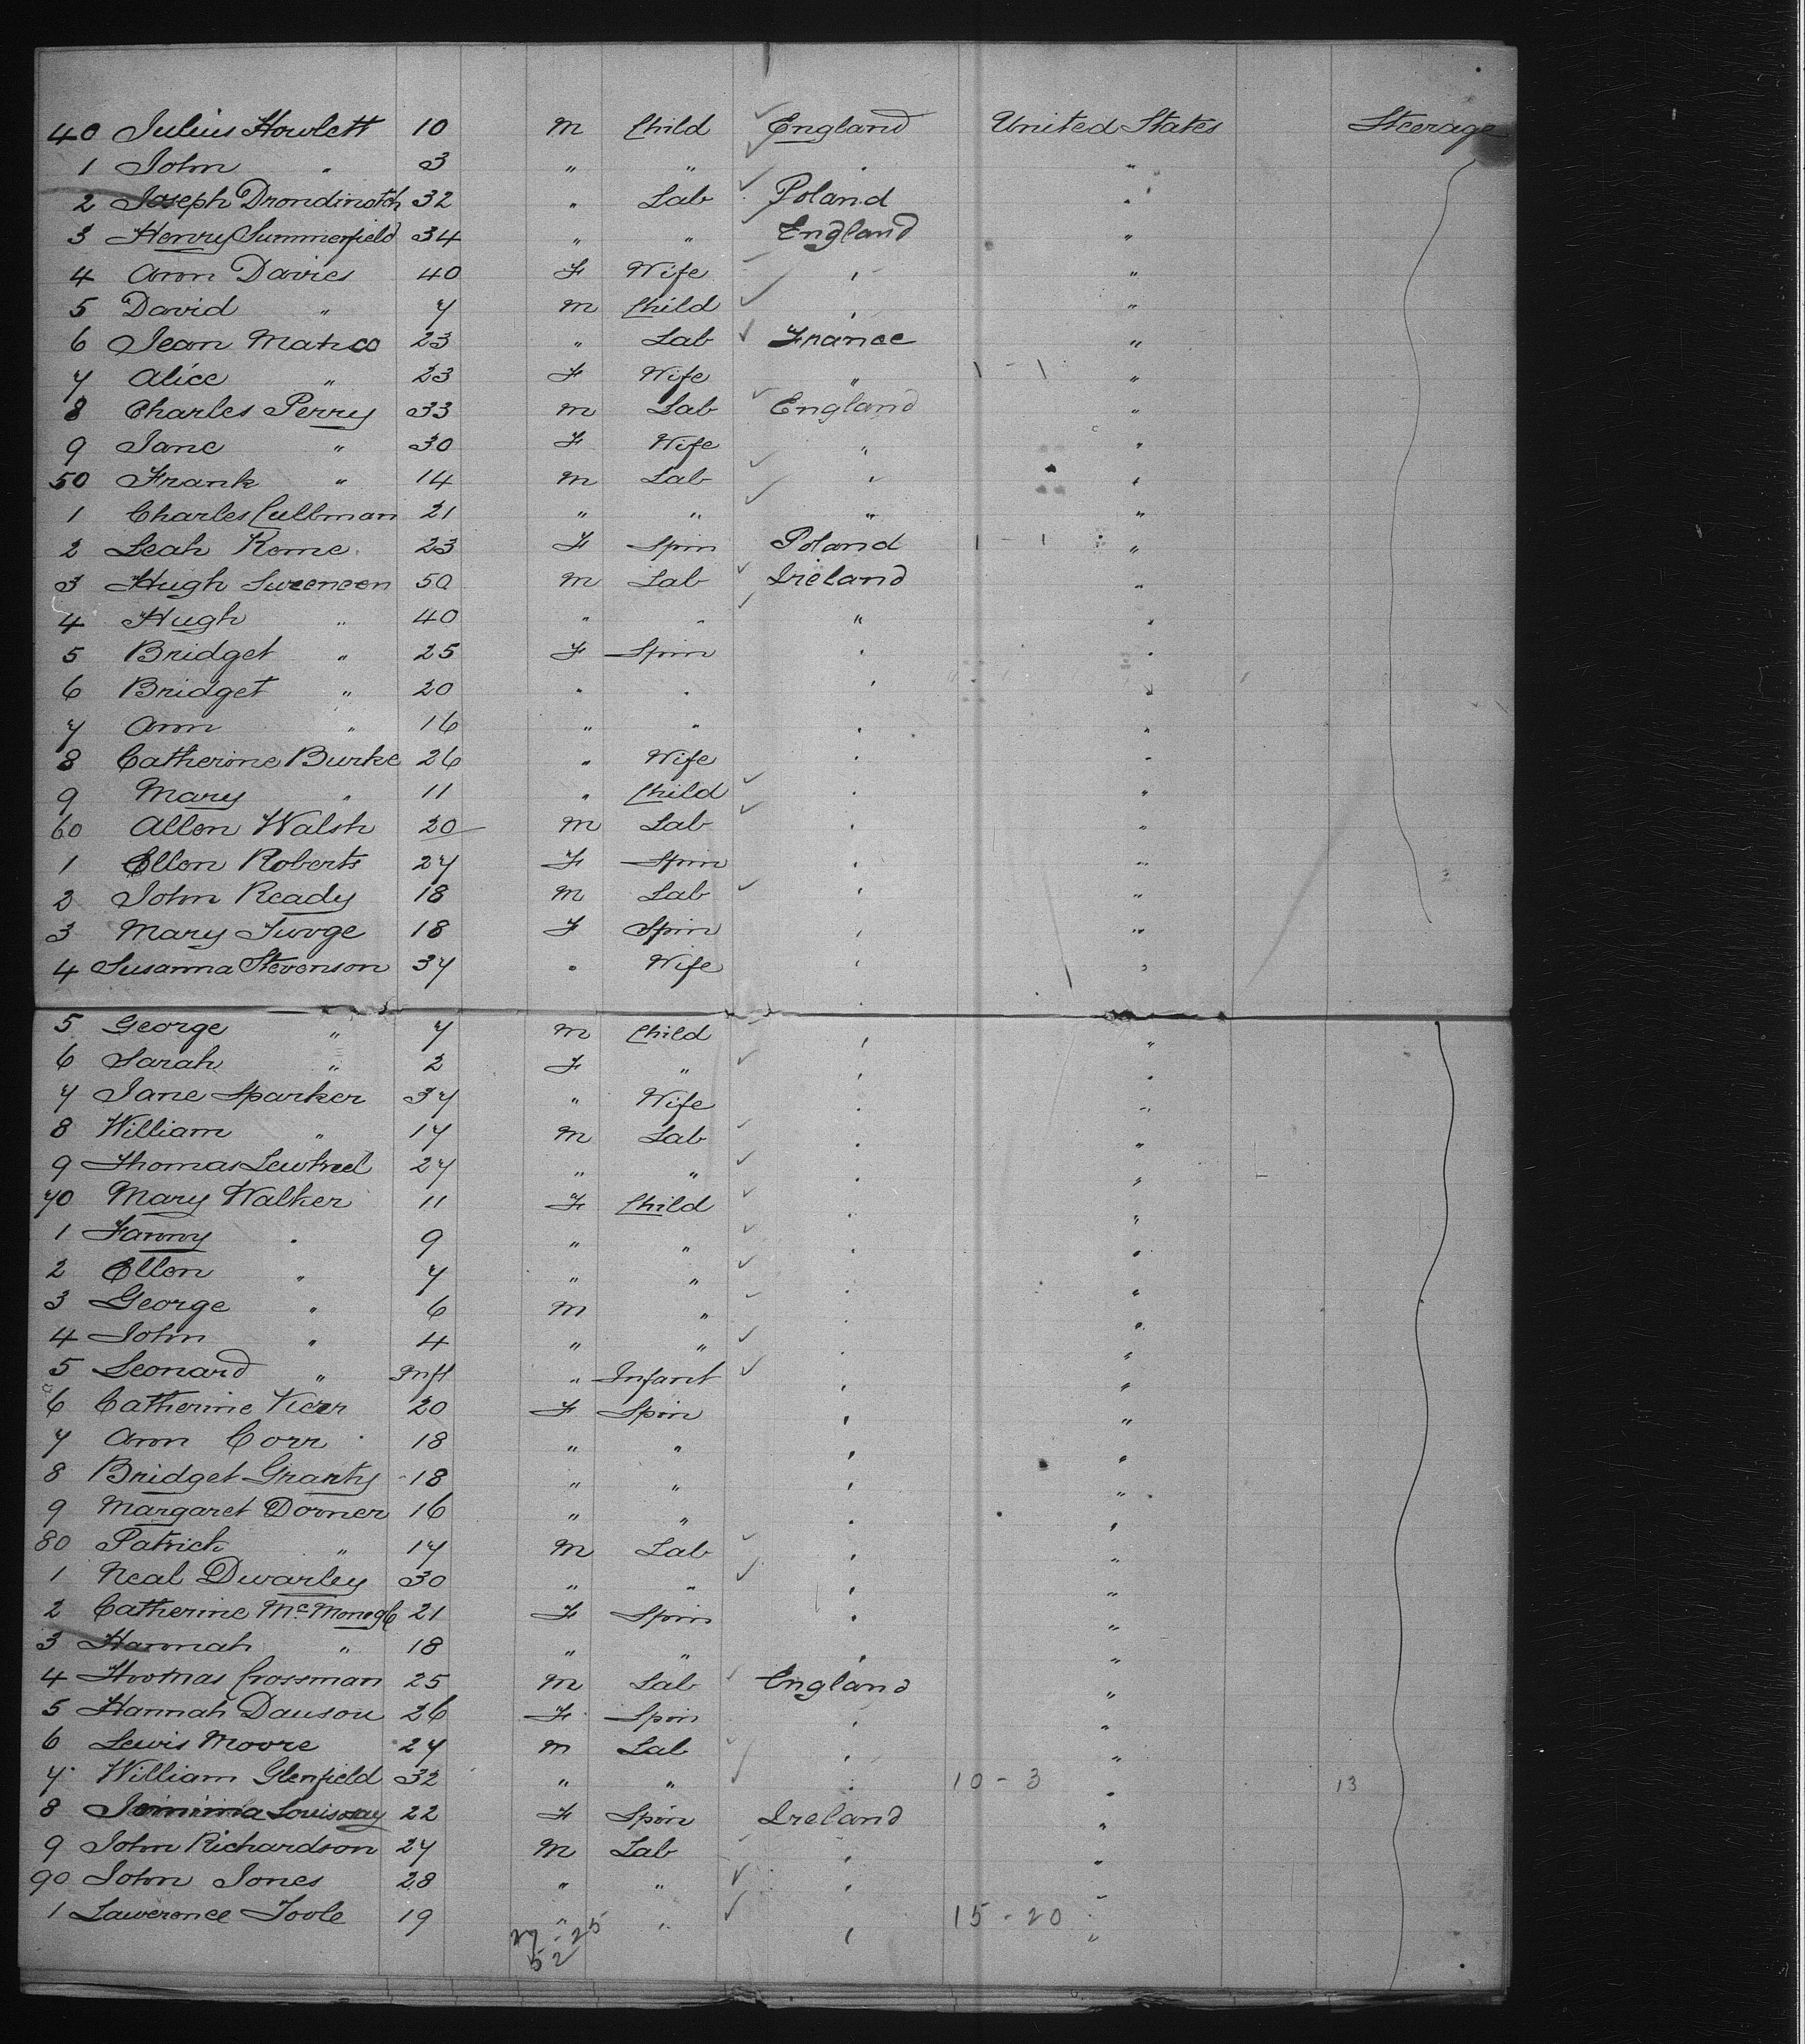 40 Julius Howlett 10 M Child England United States Steerage
1 John " 3 " " " "
2 Joseph 32 " Lab Poland "
3 Henry Summerfield 34 " " England "
4 Ann Davies 40 F Wife " "
5 David " 7 M Child " "
6 Jean 23 " Lab France "
7 Alice " 23 F Wife " 1 - 1 "
8 Charles Perry 33 M Lab England "
9 Jane " 30 F Wife " "
50 Frank " 14 M Lab " "
1 Charles Cullman 21 " " " "
2 Leah Rome 23 F Spin Poland 1 - 1 "
3 Hugh 50 M Lab Ireland "
4 Hugh " 40 " " " "
5 Bridget " 25 F Spin " "
6 Bridget " 20 " " " "
7 Ann " 16 " " " "
8 Catherine Burke 26 " Wife " "
9 Mary " 11 " Child " "
60 Allen Walsh 20 M Lab " "
1 Ellen Roberts 27 F Spin " "
2 John Ready 18 M Lab " "
3 Mary 18 F Spin " "
4 Susanna Stevenson 37 " Wife " "
5 George " 7 M Child " "
6 Sarah " 2 F " " "
7 Jane Sparker 37 " Wife " "
8 William " 17 M Lab " "
9 Thomas 27 " " " "
70 Mary Walker 11 F Child " "
1 Fanny " 9 " " " "
2 Ellen " 7 " " " "
3 George " 6 M " " "
4 John " 4 " " " "
5 Leonard " Inft " Infant " "
6 Catherine 20 F Spin " "
7 Ann Corr 18 " " " "
8 Bridget Granty 18 " " " "
9 Margaret Dorner 16 " " " "
80 Patrick " 17 M Lab " "
1 Neal Dwarley 30 " " " "
2 Catherine McMonegle 21 F Spin " "
3 Hannah " 18 " " " "
4 Thomas Crossman 25 M Lab England "
5 Hannah Dauson 26 F Spin " "
6 Lewis Moore 27 M Lab " "
7 William Glenfield 32 " " " 10 - 3 " 13
8 Jemima 22 F Spin Ireland "
9 John Richardson 27 M Lab " "
90 John Jones 28 " " " "
1 Lawerence Toole 19 " " " 15 - 20 "
27 - 25
52